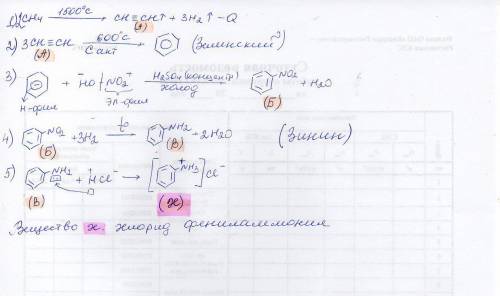 1) 2CH₄ —1500°C→ CH≡CH↑ + 3H₂↑ –Q
(А)
2) 3CH≡CH —600°C, C акт→ (Зелинский)
(А)
3) + HO NO₂⁺ —H₂SO₄ (концентр), холод→ NO₂ + H₂O
Н-фил эл-фил (Б)
4) NO₂ + 3H₂ —t°→ NH₂ + 2H₂O (Зинин)
(Б) (В)
5) NH₂ + HCl⁻ → [ NH₃⁺ ] Cl⁻
(В) (Х)
Вещество х: хлорид фениламмония